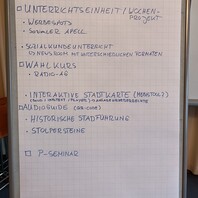 □ UNTERRICHTSEINHEIT / WOCHEN-
PROJEKT
• WERBESPOTS
• SOZIALER APELL
• SOZIALKUNDEUNTERRICHT
NEWSROOM MIT UNTERSCHIEDLICHEN FORMATEN
□ WAHLKURS
• RADIO-AG
• INTERAKTIVE STADTKARTE
□ AUDIOGUIDE (QR-CODE)
• HISTORISCHE STADTFÜHRUNG
• STOLPERSTEINE
□ P-SEMINAR